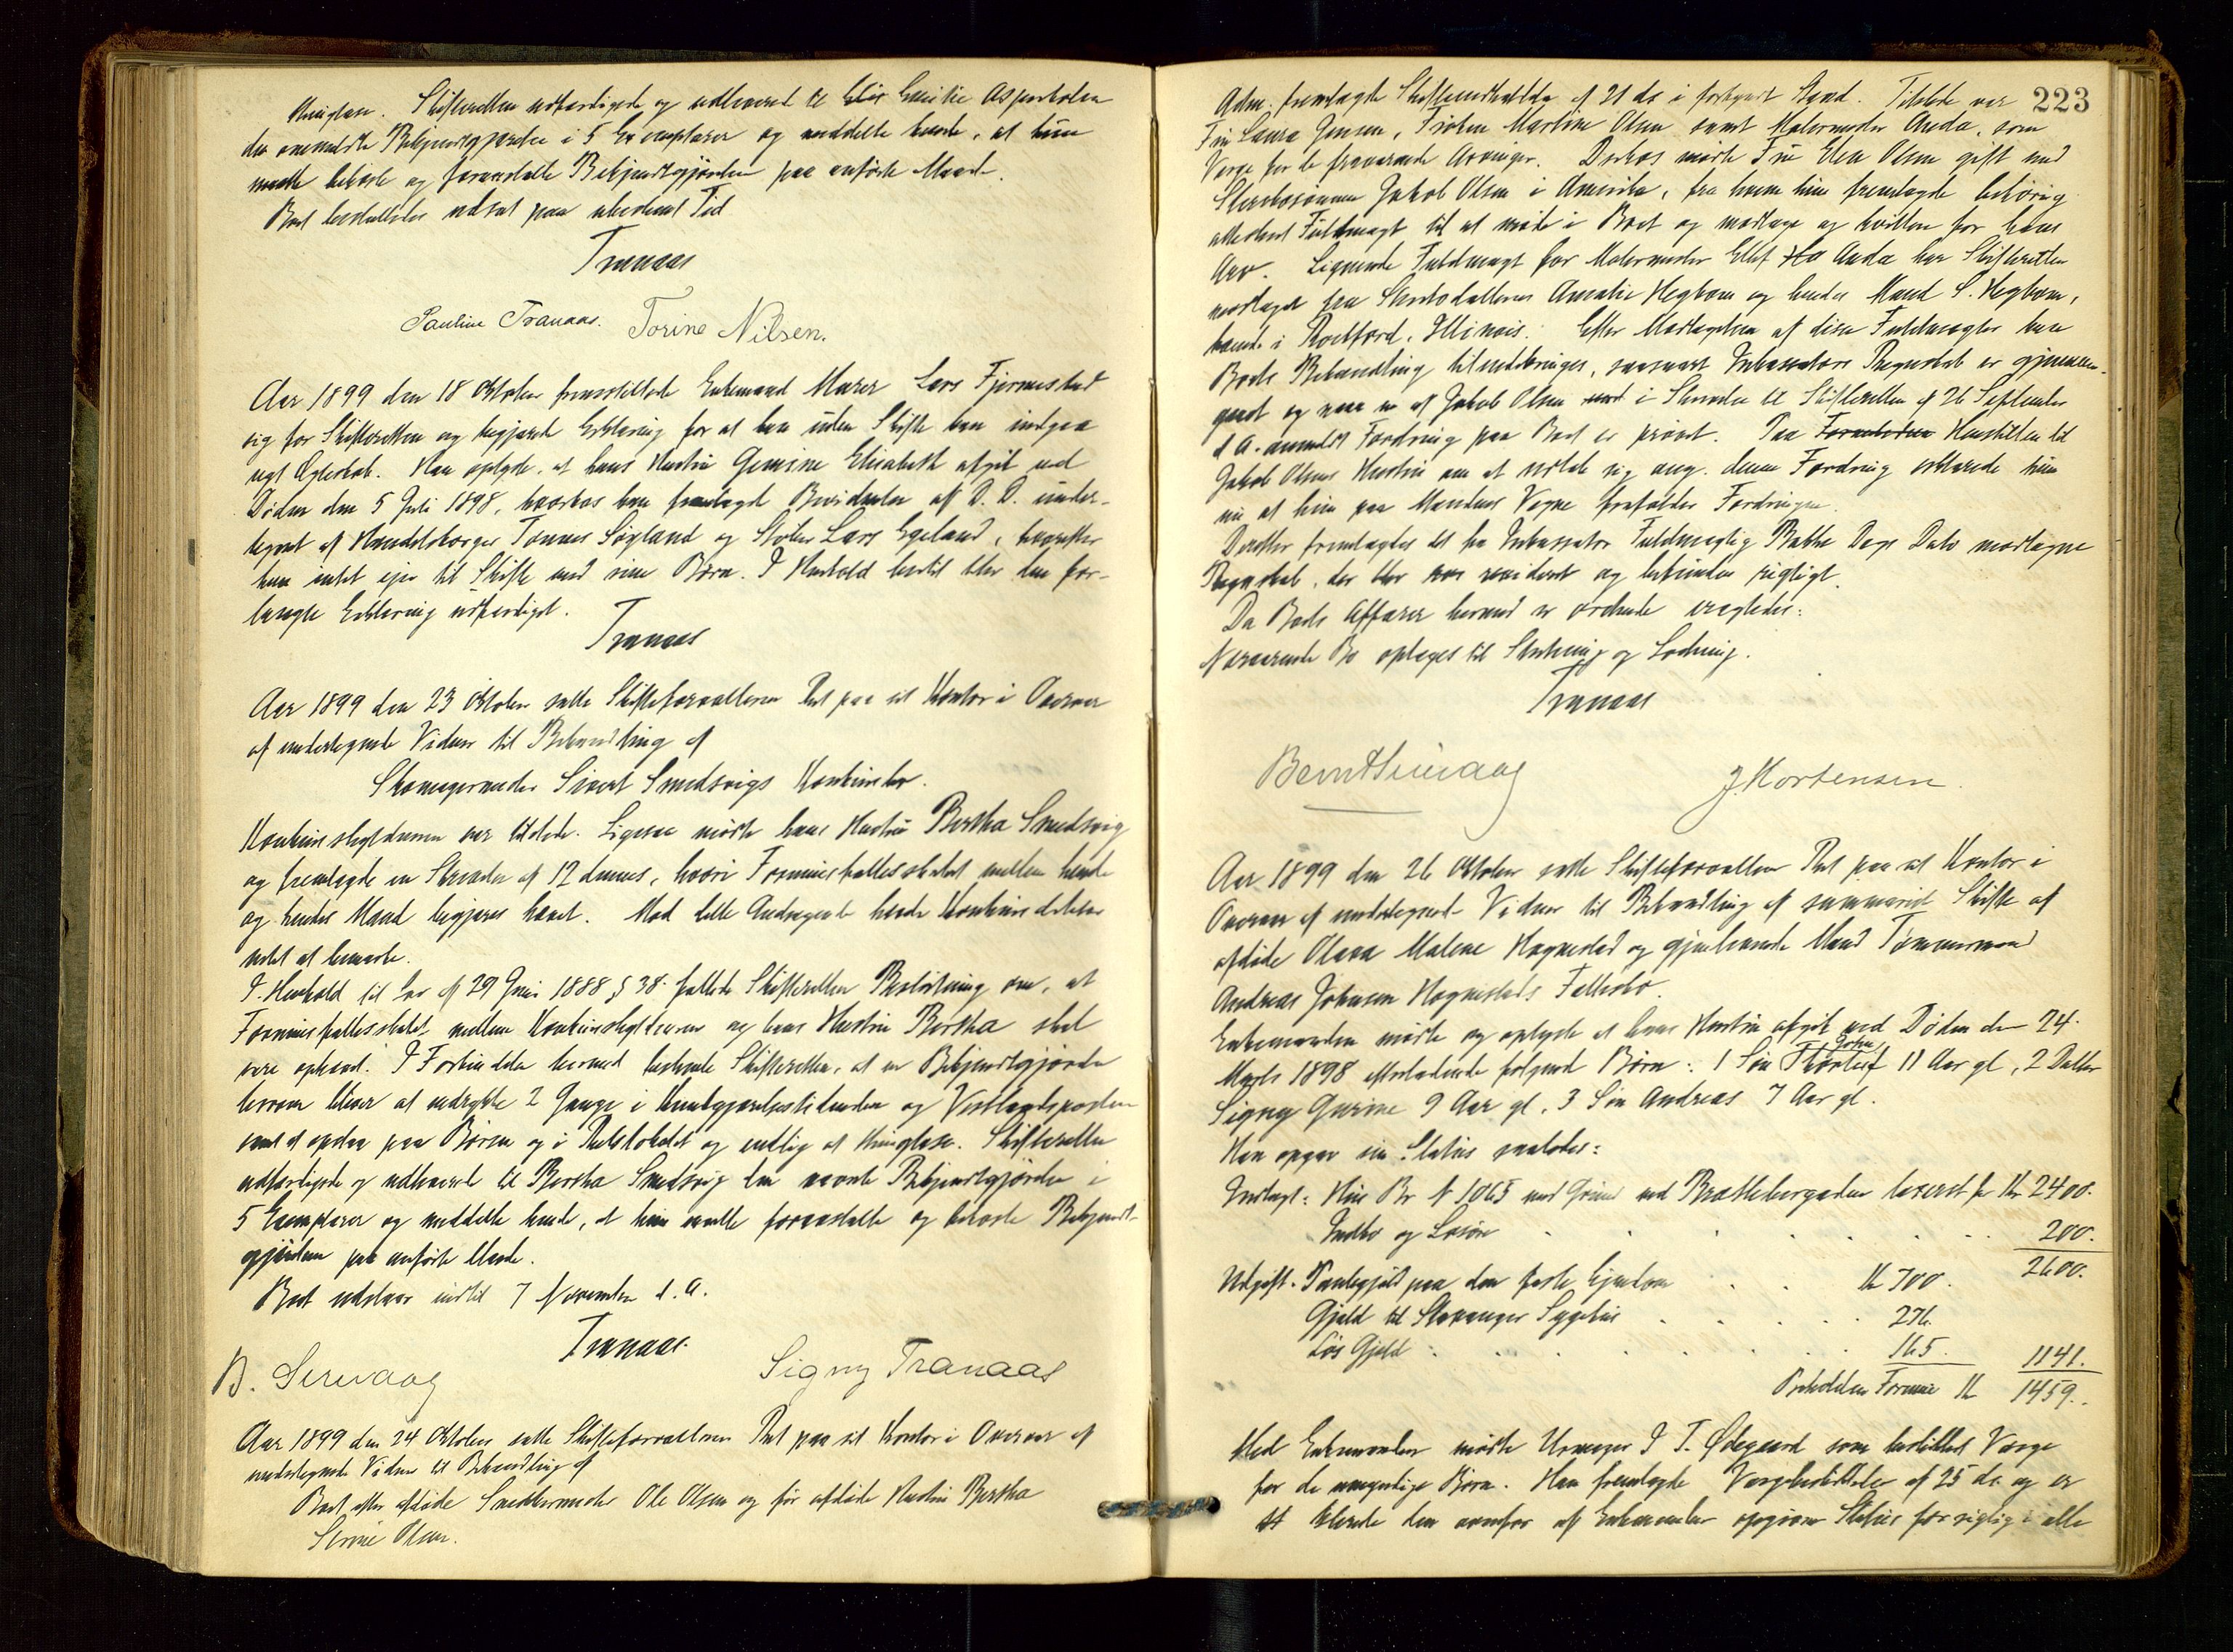 thinglæse. Skifteretten udfærdigede og udleverede til Emilie Aspenholen
den omm Bekjendtgjørelse i 5 Exemplarer og meddelte hende, at hun
maatte bekoste og foranstalte Bekjendtgjørelsen paa anførte Maade.
Boet besluttedes udsat paa ubestemt Tid
Tranaas
Pauline Tranaas. Torine Nilsen.
Aar 1899 den 18 Oktober fremstillede Enkemand Murer Lars Fjermestad
sig for Skifteretten og begjærede Erklæring for at han uden Skifte kan indgaa
nyt Ægteskab. Han oplyste, at hans Hustru Gemine Elisabeth afgik ved
Døden den 5 Juli 1898, hvorhos han fremlagde Bevidnelse af D. D. under-
tegnet af Handelsborger Tønnes Søyland og Lars Egeland, hvorefter
han intet ejer til Skifte med sine Børn. I Henhold hertil blev den for-
langte Erklæring udfærdiget.
Tranaas
Aar 1899 den 23 Oktober satte Skifteforvalteren Ret paa sit Kontor i Overvær
af undertegnede Vidner til Behandling af
Skomagermester Sivert Smedsvigs Konkursbo.
Konkursskyldneren var tilstede. Ligesaa mødte hans Hustru Bertha Smedsvig
og fremlagde en Skrivelse af 12 dennes, hvori Formuesfællesskabet mellem hende
og hendes Mand begjæres hævet. Mod dette Andragende havde Konkursdebitor
intet at bemærke.
I Henhold til Lov af 29 Juni 1888 § 38 fattede Skifteretten Beslutning om, at
Formuesfællesskabet mellem Konkursskyldneren og hans Hustru Bertha skal
være ophævet. I Forbindelse hermed bestemte Skifteretten, at en Bekjendtgjørelse
herom bliver at indrykke 2 Gange i Kundgjørelsestidenden og Vestlandsposten
samt at opslaa paa Børsen og i Retslokalet og endelig at thinglæse. Skifteretten
udfærdigede og udleverede til Bertha Smedsvig den nævnte Bekjendtgjørelse i
5 Exemplarer og meddelte hende, at hun maatte foranstalte og bekoste Bekjendt-
gjørelsen paa anførte Maade.
Boet udstaar indtil 7 November d. A.
Tranaas.
B. Sirevaag Signy Tranaas
Aar 1899 den 24 Oktober satte Skifteforvalteren Ret paa sit Kontor i Overvær af
undertegnede Vidner til Behandling af
Boet efter afdøde Snedkermester Ole Olsen og før afdøde Hustru Bertha
Serine Olsen.
223
Adm. fremlagde Skifteindkaldelse af 21 ds i forkyndt Stand. Tilstede var
Fru Laura Jensen, Frøken Martine Olsen samt Malermester Anda, som
Verge for de fraværende Arvinger. Derhos mødte Fru Elen Olsen gift med
Stervbosønnen Jakob Olsen i Amerika, fra hvem hun fremlagde behørig
attesteret Fuldmagt til at møde i Boet og modtage og kvittere for hans
Arv. Lignende Fuldmagt for Malermester Ellef Anda har Skifteretten
modtaget fra Stervbodatteren Amalie Hegbom og hendes Mand S. Hegbom,
i Rockford, Illinois. Efter Modtagelsen af disse Fuldmagter kan
Boets Behandling tilendebringes, saasnart Inkassators Regnskab er gjennem-
gaaet og naar en af Jakob Olsen i Skrivelse til Skifteretten af 26 September
d A. anmeldt Fordring paa Boet er prøvet. Paa Henstillen til
Jakob Olsens Hustru om at udtale sig ang. denne Fordring erklærede hun
nu at hun paa Mandens Vegne frafalder Fordringen.
Derefter fremlagdes det fra Inkassator Fuldmægtig Bakke Dags Dato modtagne
Regnskab, der blev revideret og befundet rigtigt.
Da Boets Affærer hermed er ordnede eragtedes:
Nærværende Bo optages til Slutning og Lodning.
Tranaas
Bernt Sirevaag J. Mortensen.
Aar 1899 den 26 Oktober satte Skifteforvalteren Ret paa sit Kontor i
Overvær af undertegnede Vidner til Behandling af summarisk Skifte af
afdøde Olava Malene Hognestad og gjenlevende Mand Tømmermand
Andreas Johnsen Hognestads Fællesbo.
Enkemanden mødte og oplyste at hans Hustru afgik ved Døden den 24.
Marts 1898 efterladende følgende Børn: 1 Søn Thorleif John 11 Aar gl, 2 Datter
Signy Gurine 9 Aar gl, 3 Søn Andreas 7 Aar gl.
Han opgav sin Status saaledes:
Indtægt: Hus Br N 1065 med Grund ved taxeret for Kr 2400.
Indbo og Løsøre 200.
2600.
Udgift. Pantegjæld paa den faste Ejendom Kr 700.
Gjæld til Stavanger Sygehus 276.
Løs Gjæld 165. 1141.
Beholden Formue Kr 1459.
Med Enkemanden mødte Urmager I T. Ødegaard som beskikket Verge
for de umyndige Børn. Han fremlagde Vergebeskikkelse af 25 ds og er
den ovenfor af Enkemanden opgivne Status for rigtig i alle